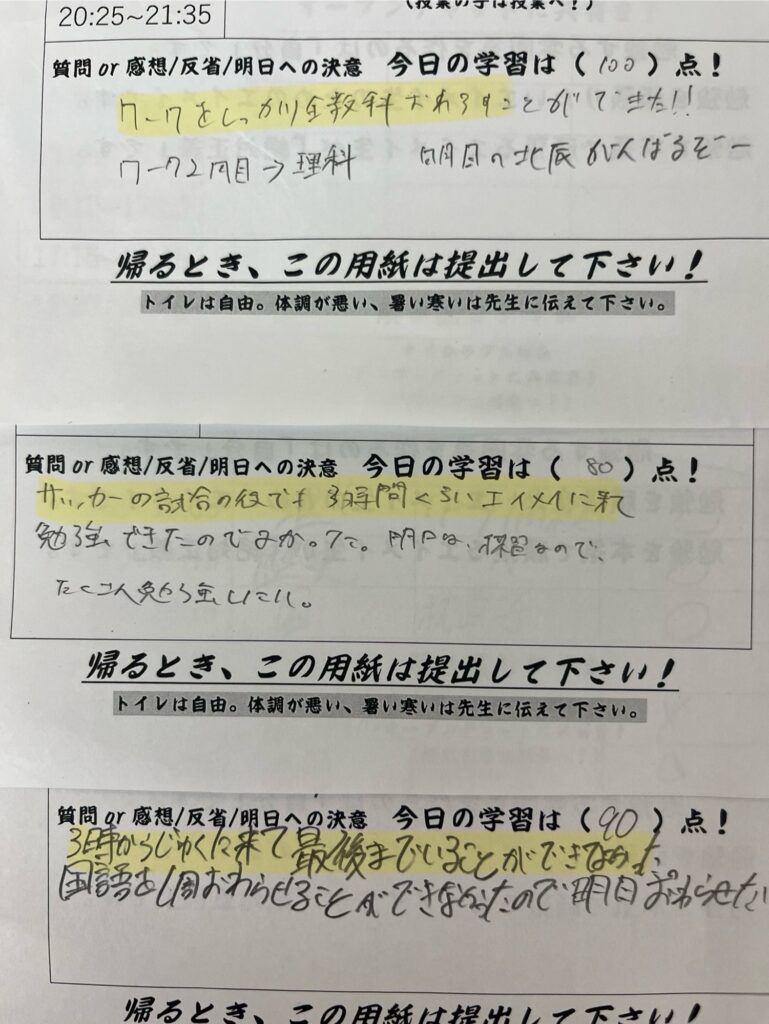 20:25~21:35
(授業の子は授業へ！)
質問 or 感想/反省/明日への決意 今日の学習は（ 100 ）点！
ワークをしっかり全教科おわらすことができた!!
ワーク2周目→理科 明日の北辰がんばるぞー
帰るとき、この用紙は提出して下さい！
トイレは自由。体調が悪い、暑い寒いは先生に伝えて下さい。
質問 or 感想/反省/明日への決意 今日の学習は（ 80 ）点！
サッカーの試合の後でも3時間くらいエイメイに来て
勉強できたのでよかった。明日は、練習なので、
たくさん勉強したい。
帰るとき、この用紙は提出して下さい！
トイレは自由。体調が悪い、暑い寒いは先生に伝えて下さい。
質問 or 感想/反省/明日への決意 今日の学習は（ 90 ）点！
3時からじゅくに来て最後までいることができなかった
国語を1周おわらせることができなかったので明日おわらせたい
帰るとき、この用紙は提出して下さい！